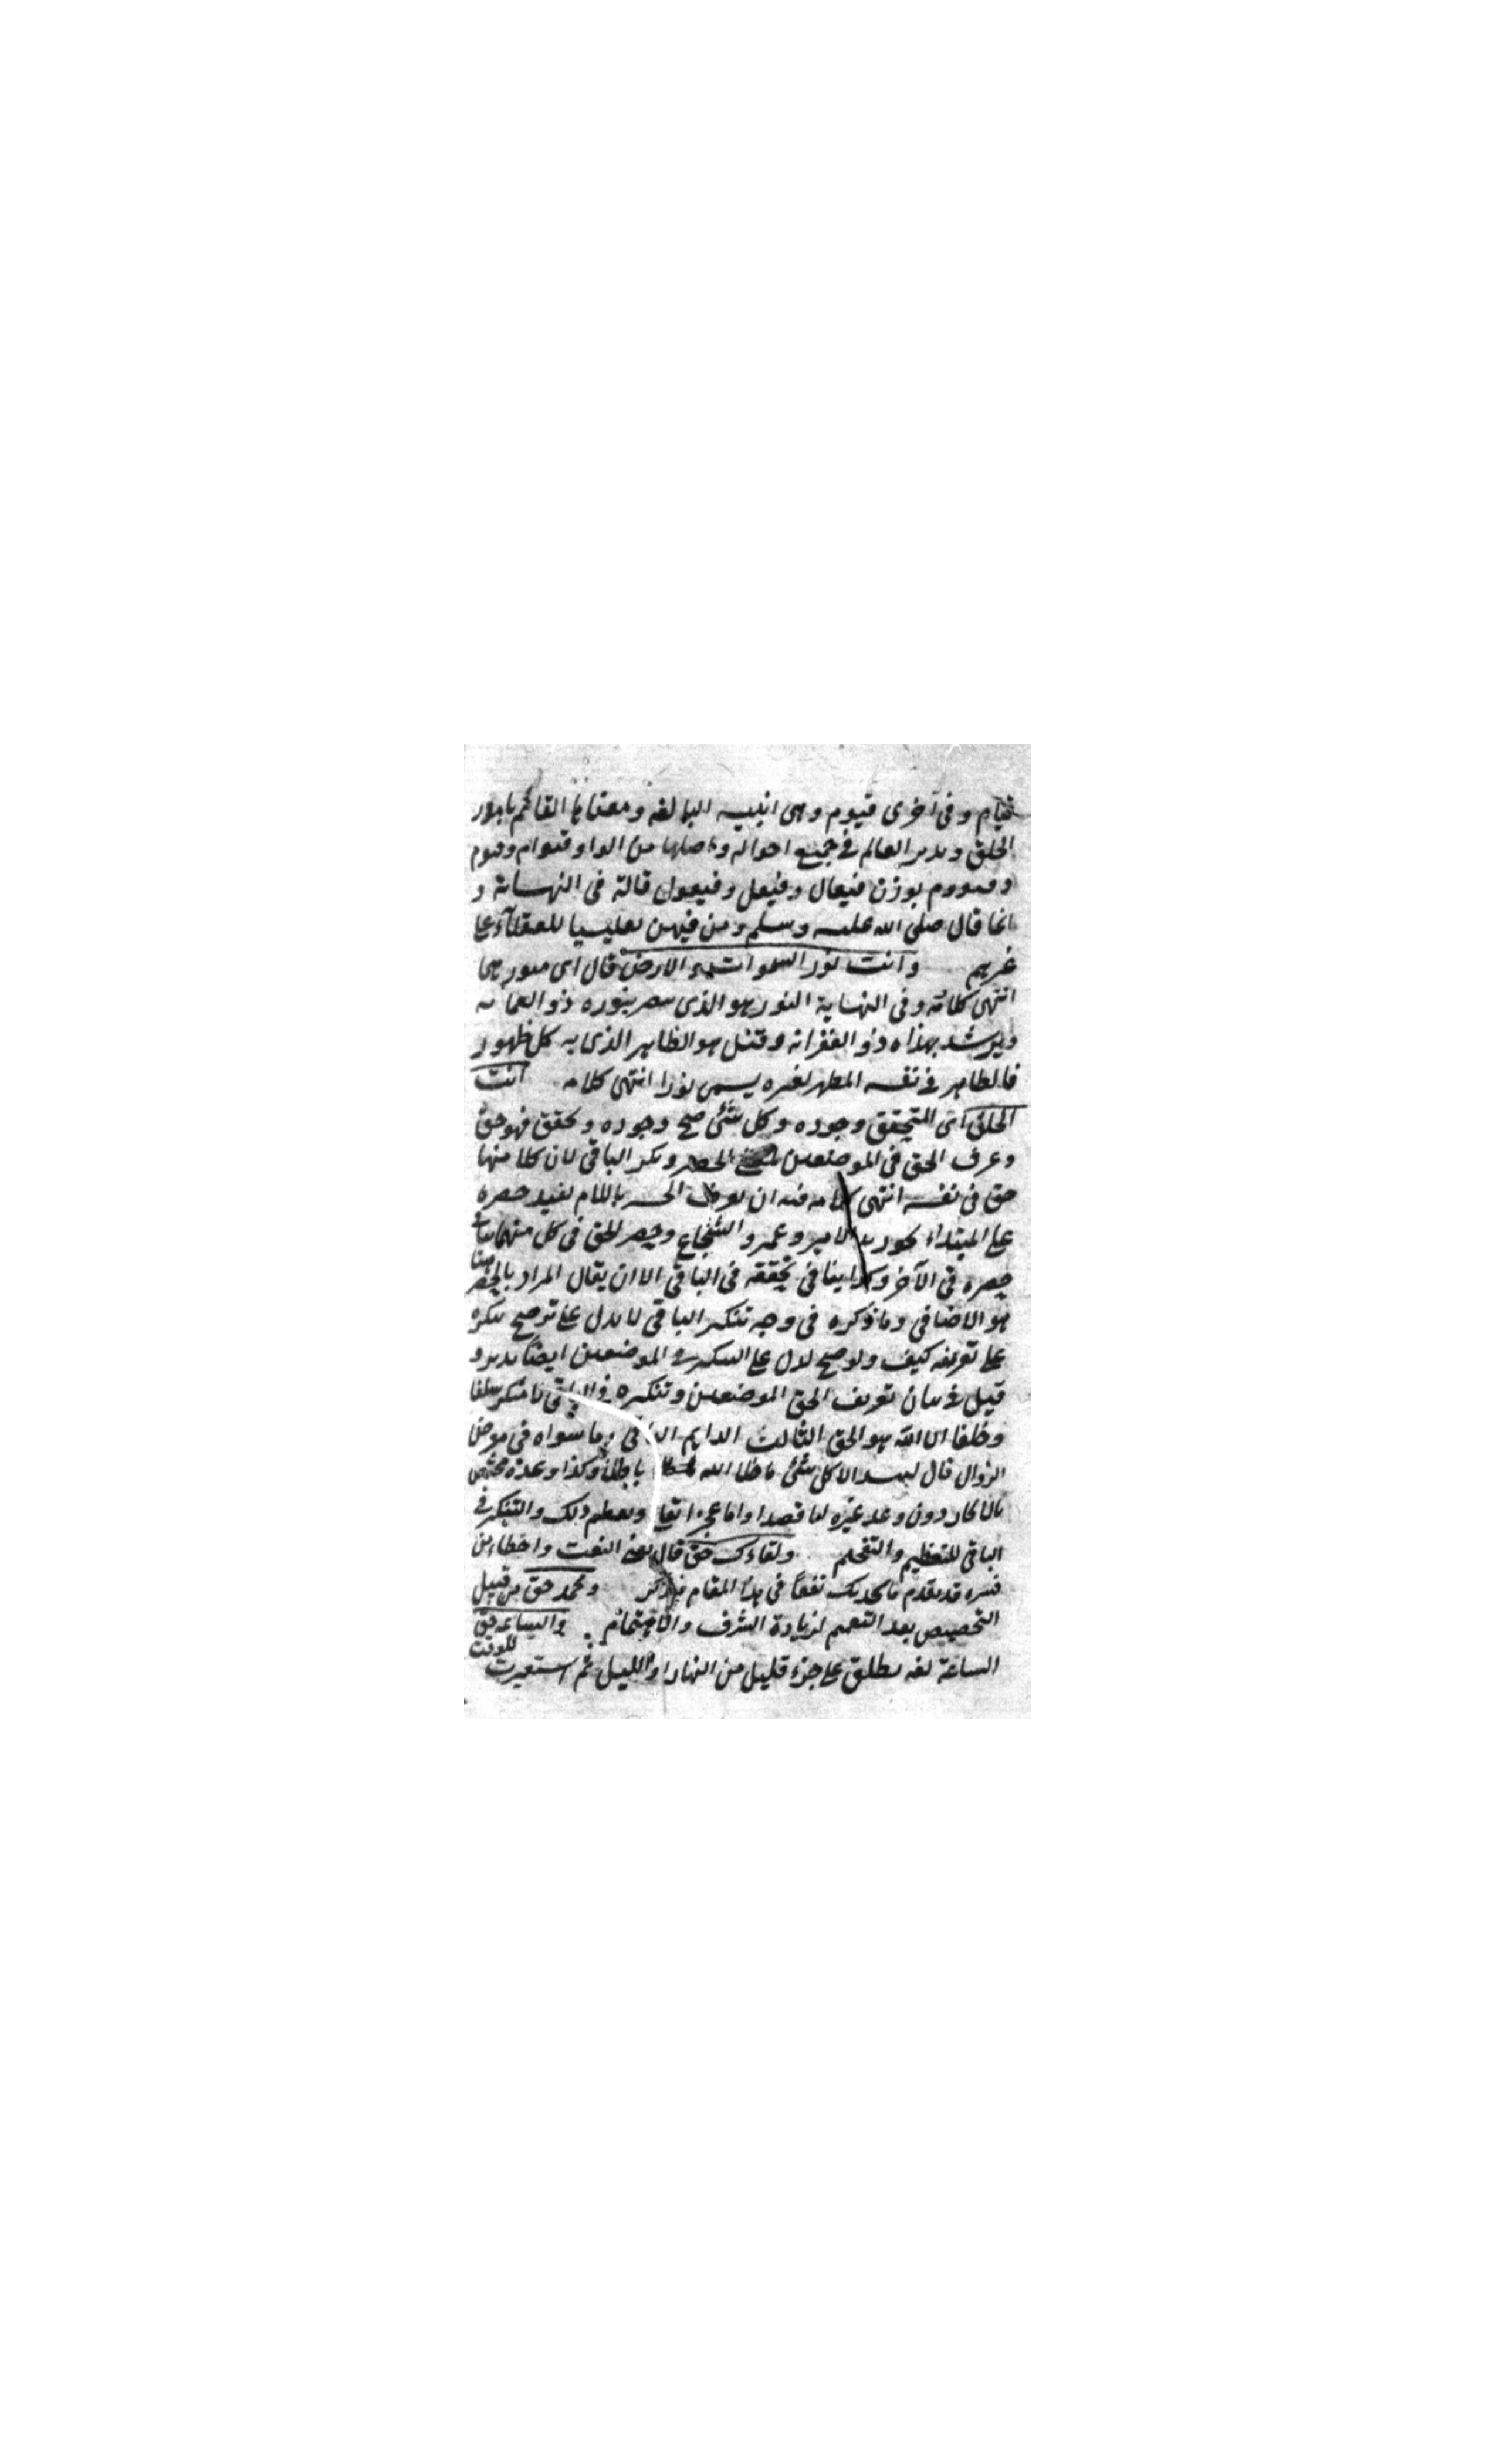 قيام وفى أخرى قيوم وهى ابنية المبالغة ومعناها القائم بامور
الخلق ومدبر العالم فى جميع احواله واصلها من الواو قيوام وقيوم
وقيووم بوزن فيعال وفيعل وفيعول قاله فى النهاية و
انما قال صلى الله عليه وسلم ومن فيهن تغليبا للعقلآء على
غيرهم وانت نور السموات والارض قال اى منورهما
انتهى كلامه وفى النهاية النور هو الذى يبصر بنوره ذو العماية
ويرشد بهداه ذو الغواية وقيل هو الظاهر الذى به كل ظهور
فالظاهر فى نفسه المظهر لغيره يسمى نورا انتهى كلامه انت
الحق اى المتحقق وجوده وكل شئ صح وجوده وتحقق فهو حق
وعرف الحق فى الموضعين للحصر ونكر الباقى لان كلا منها
حق فى نفسه انتهى كلامه فيه ان تعريف الخبر باللام يفيد حصره
على المبتداء نحو زيد الامير وعمرو الشجاع وحصر الحق فى كل منهما ينافى
حصره فى الآخر وكذا ينافى تحققه فى الباقى الا ان يقال المراد بالحصر هنا
هو الاضافى وما ذكره فى وجه تنكير الباقى لا يدل على ترجيح تنكيره
على تعريفه كيف ولو صح لدل على التنكير فى الموضعين ايضا تدبر و
قيل فى بيان تعريف الحق الموضعين وتنكيره فى الباقى لا منكر سلفا
وخلفا ان الله هو الحق الثابت الدايم الباقى وما سواه فى معرض
الزوال قال لبيد الا كل شئ ما خلا الله باطل وكذا وعده مختص
بالانجاز دون وعد غيره اما قصدا واما عجزا تعالى والتنكير فى
الباقى للتعظيم والتفخيم ولقاءك حق قال البعث واخطاء من
فسره قد تقدم ما يجديك نفعا فى هذا المقام فتذكر ومحمد حق من قبيل
التخصيص بعد التعميم لزيادة الشرف والاهتمام والساعة حق
الساعة لغة يطلق على جزء قليل من النهار او الليل ثم استعيرت للوقت